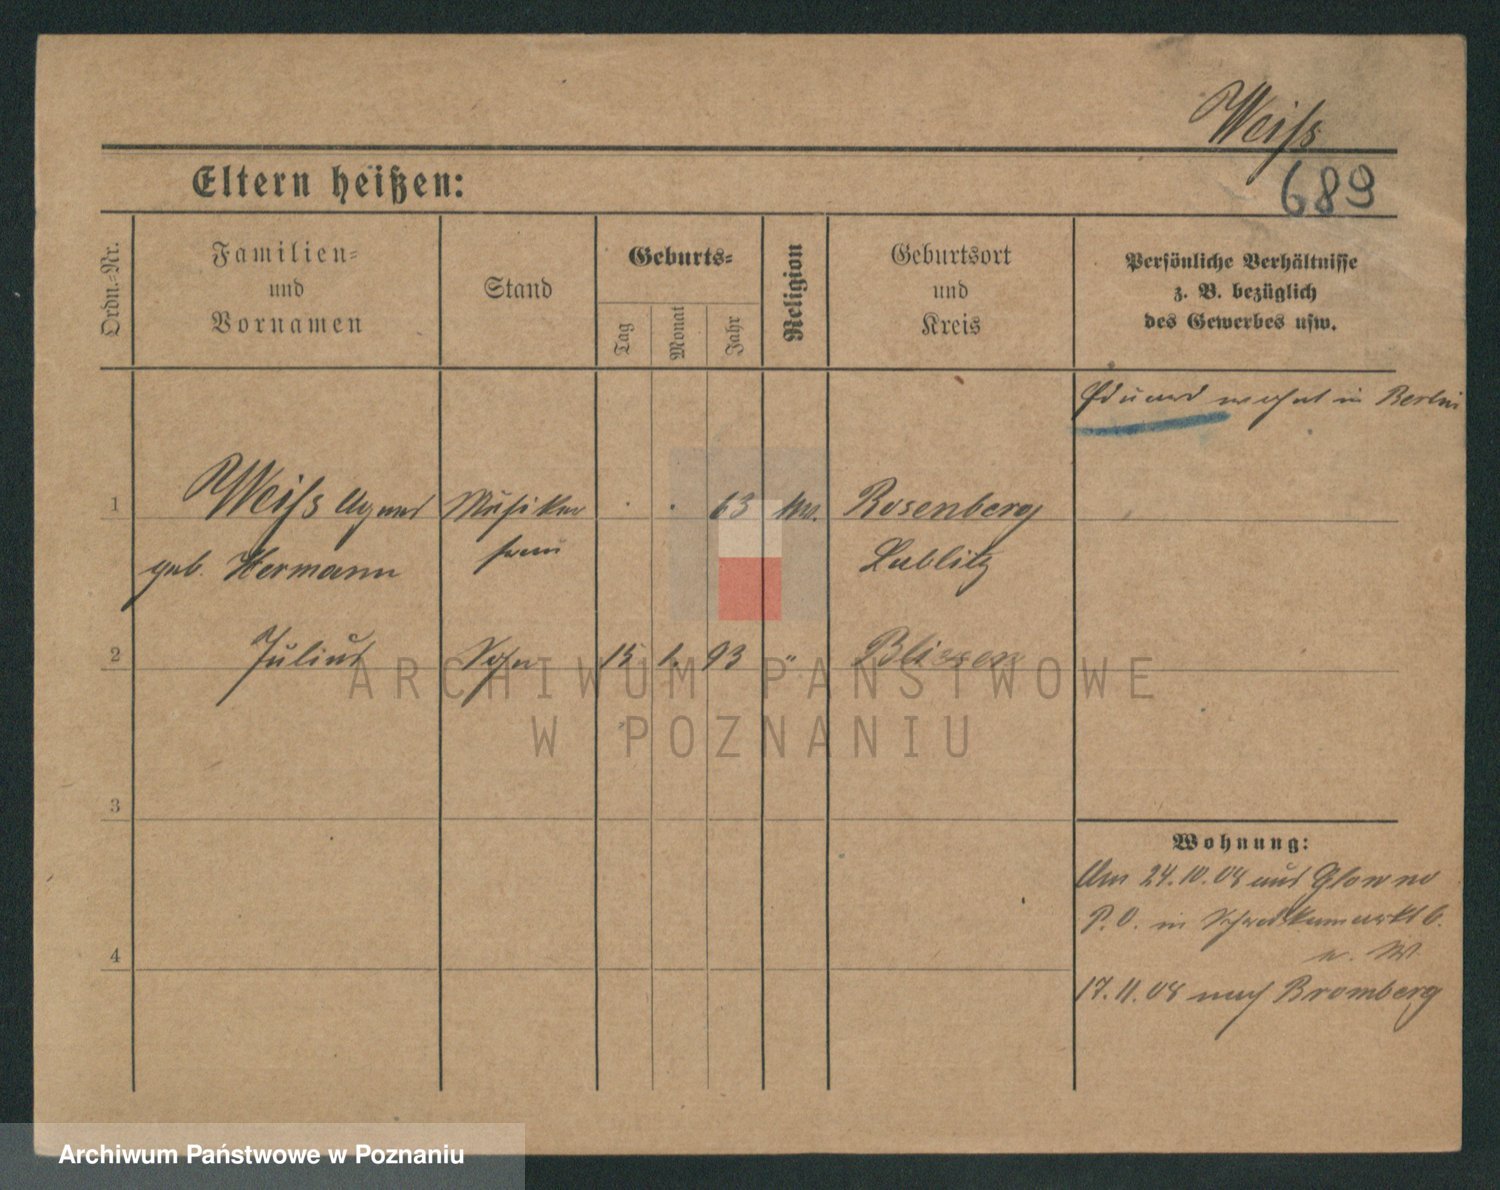 Weiss
689
Eltern heißen:
Ordn.-Nr.
Familien-
und
Vornamen
Stand
Geburts-
Tag
Monat
Jahr
Religion
Geburtsort
und
Kreis
Persönliche Verhältnisse
z. B. bezüglich
des Gewerbes usw.
Eduard wohnt in Berlin
1 Weiss Agnes Musiker 63 Rosenberg
geb. Hermann frau Lublitz
2 Julius Sohn 15 1. 93 "
3
4
Wohnung:
Am 24.10.08 aus Glowno
P. O. in
17.11.08 nach Bromberg
ARCHIWUM PAŃSTWOWE
W POZNANIU
Archiwum Państwowe w Poznaniu